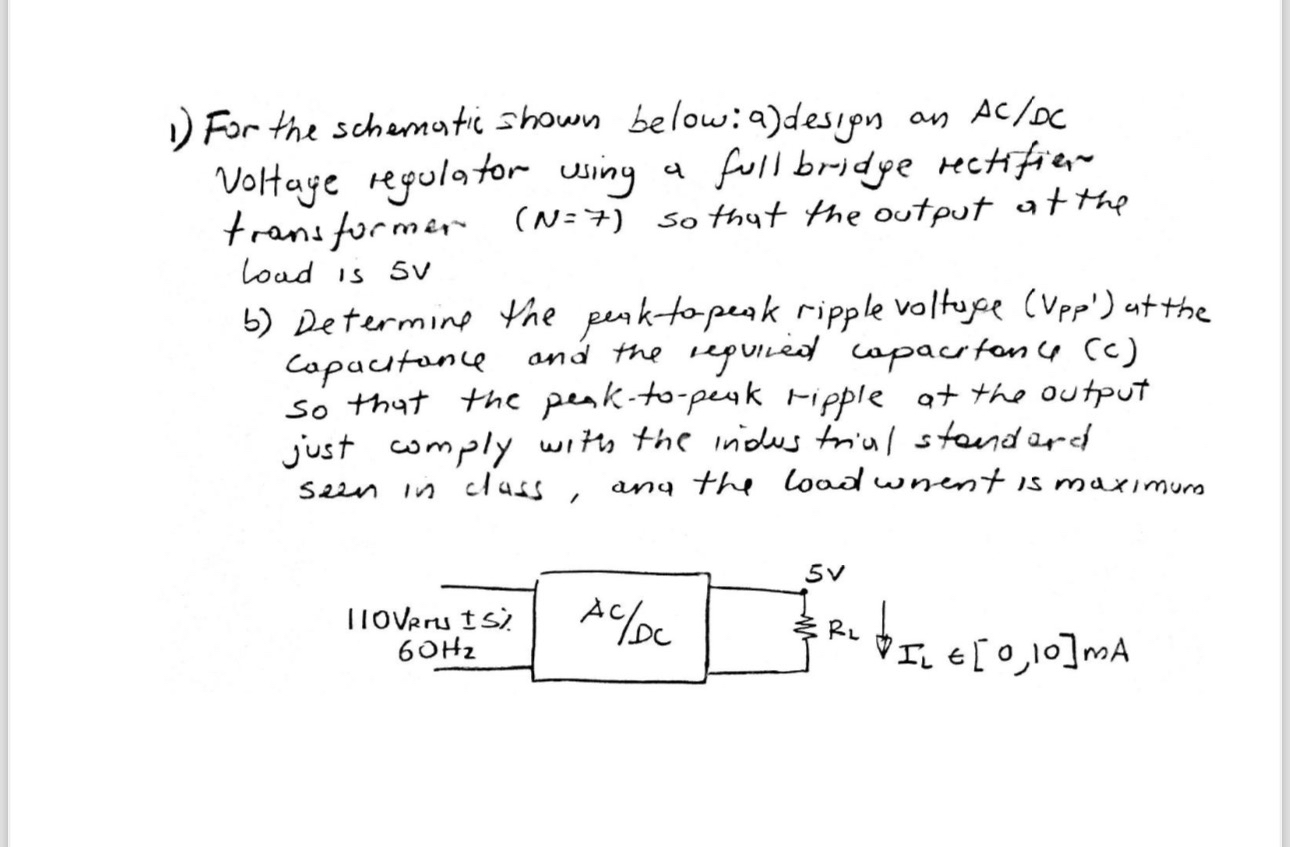 1) For the schematic shown below: a) design an AC/DC
Voltage regulator using a full bridge rectifier
transformer (N=7) so that the output at the
load is 5V
b) Determine the peak-to-peak ripple voltage (Vpp') at the
capacitance and the required capacitance (C)
so that the peak-to-peak ripple at the output
just comply with the industrial standard
seen in class, and the load current is maximum
5V
110VRMS ±5%
60Hz
AC/DC
RL
IL ∈ [0,10] mA